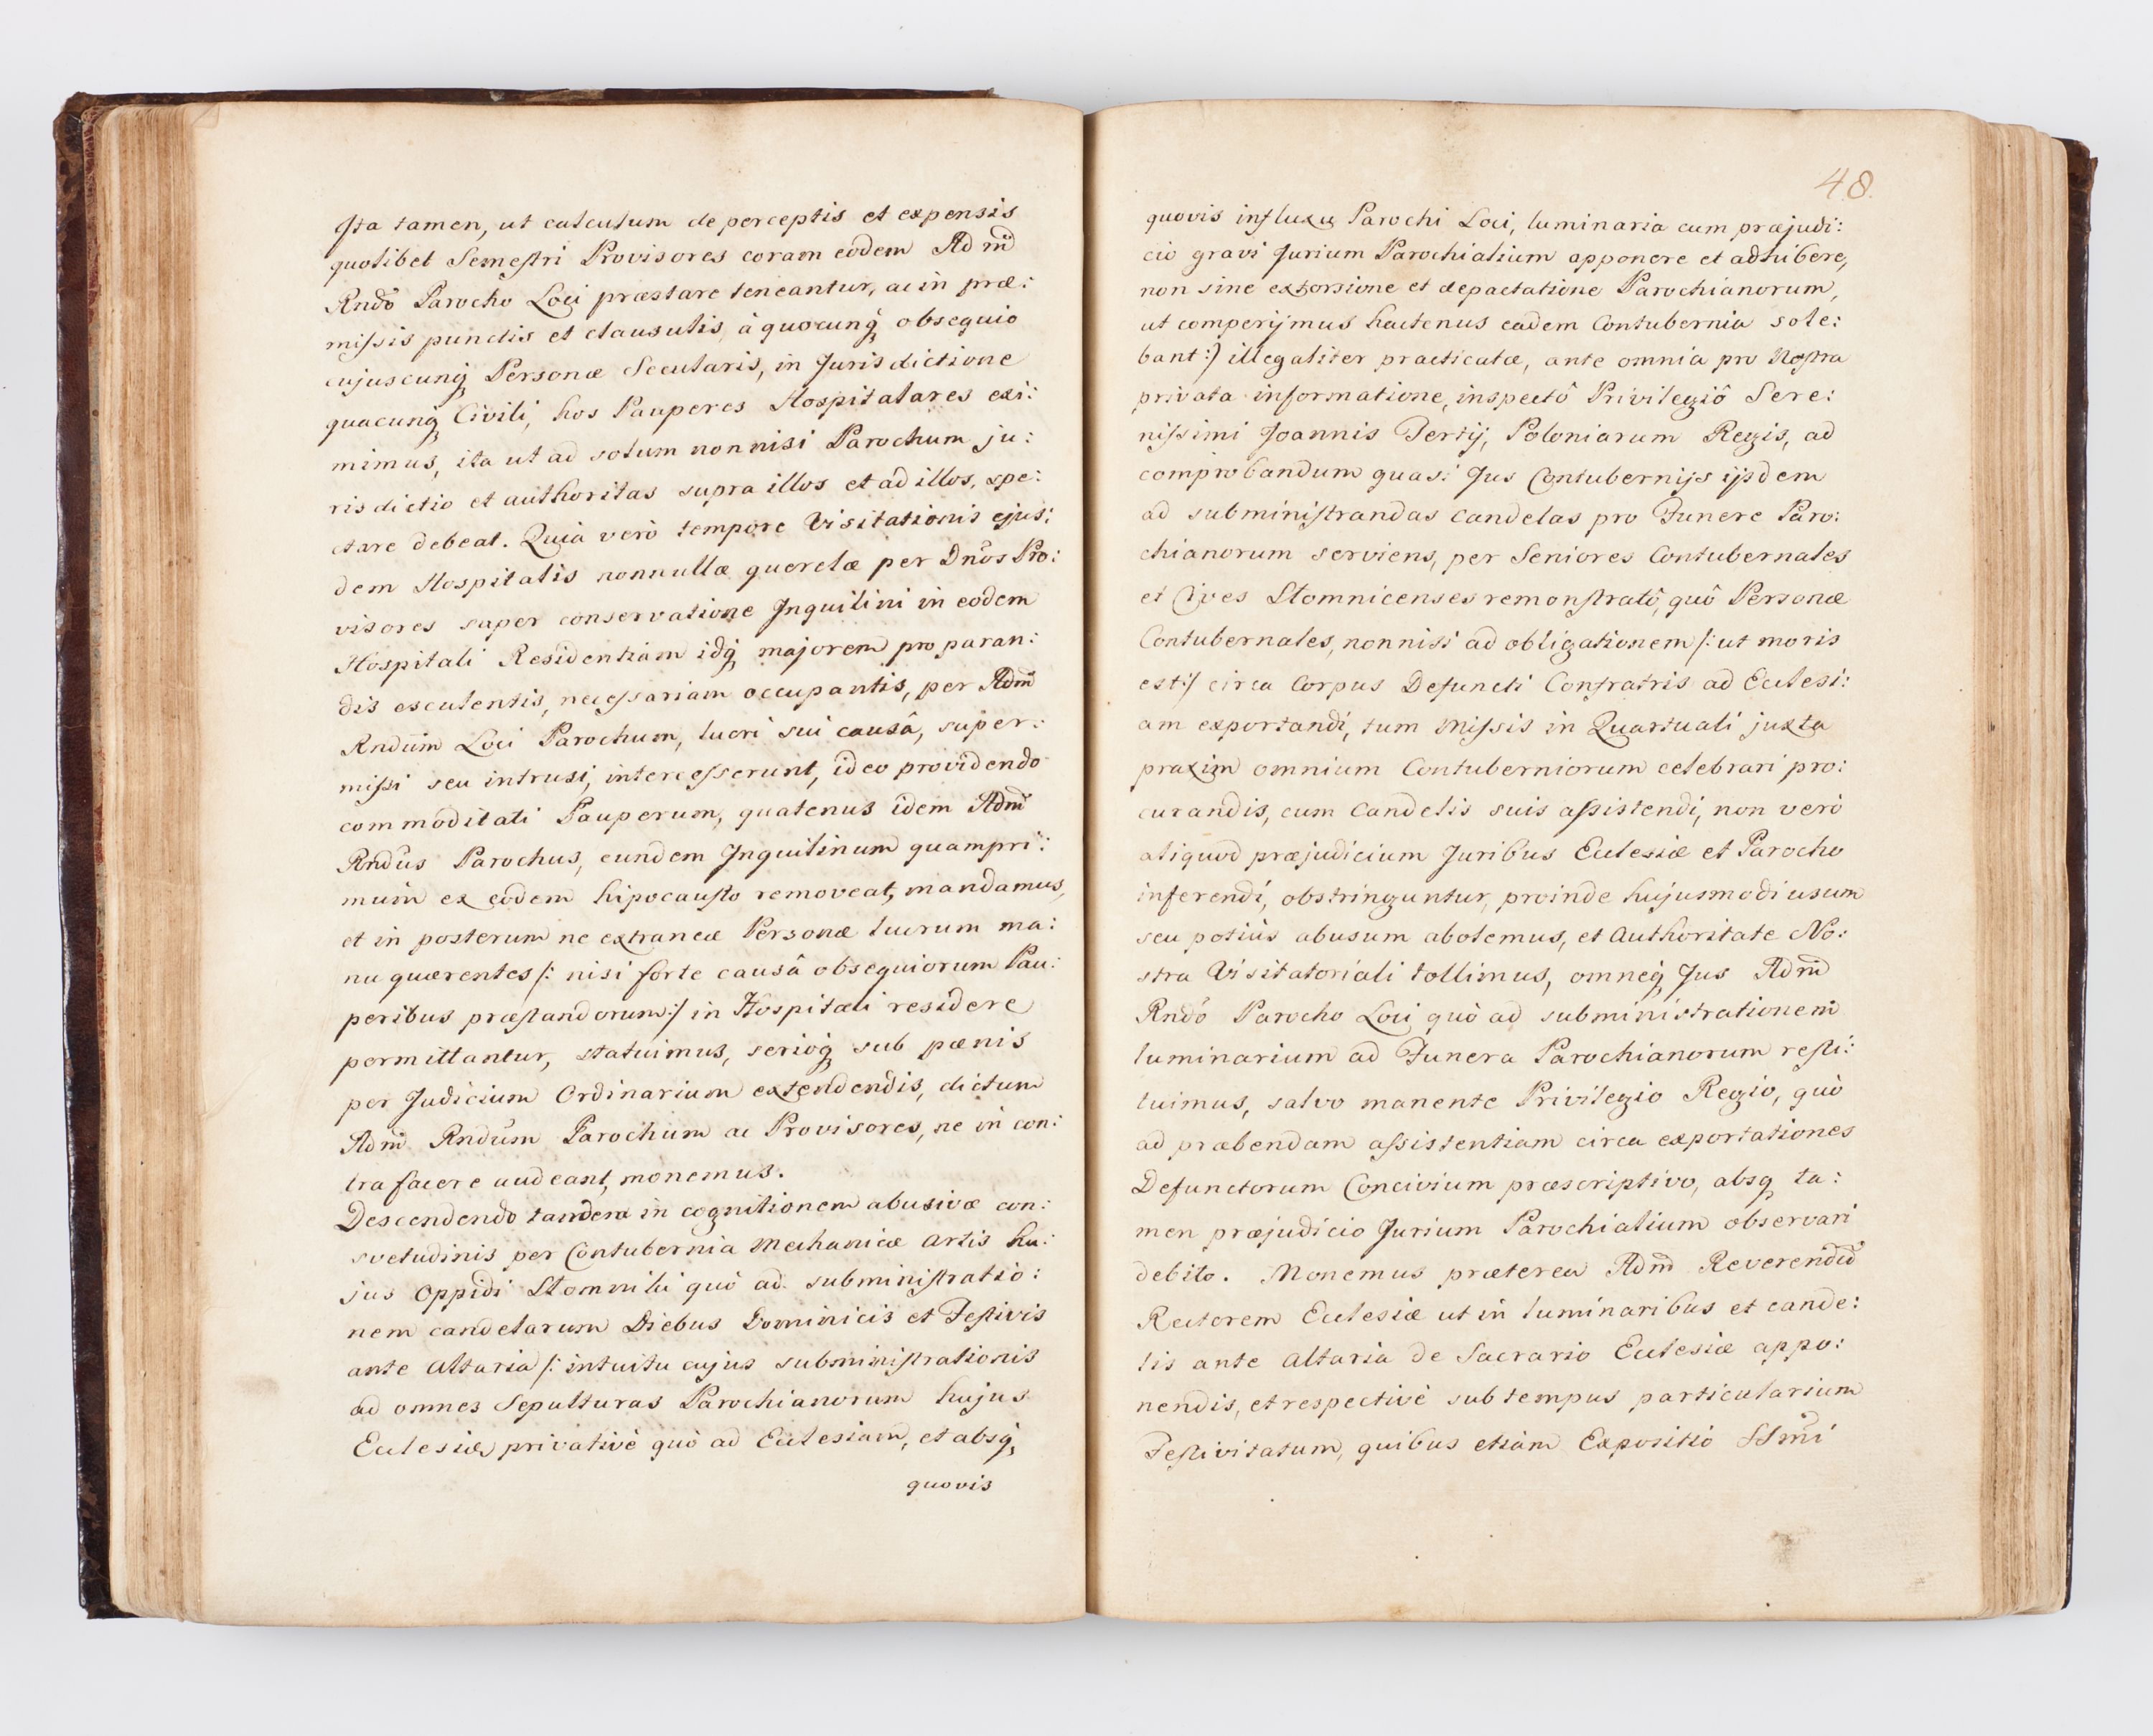 Ita tamen, ut calculum de perceptis et expensis
quolibet Semestri Provisores coram eodem Adm̃
Rndo Parocho Loci præstare teneantur, ac in præ:
missis punctis et clausulis, à quocunq obsequio
cujuscunq Personæ Secularis, in Jurisdictione
quacunq Civili, hos Pauperes Hospitalares exi:
mimus, ita ut ad solum nonnisi Parochum ju:
risdictio et authoritas supra illos et ad illos, spe:
ctare debeat. Quia verò tempore Visitationis ejus:
dem Hospitalis nonnullæ querelæ per Dnos Pro:
visores super conservatione Inquilini in eodem
Hospitali Residentiam idq majorem pro paran:
dis esculentis, necessariam occupantis, per Adm̃
Rndum Loci Parochum, lucri sui causâ, super:
missi seu intrusi, intercesserunt, ideo providendo
commoditati Pauperum, quatenus idem Adm̃
Rndus Parochus, eundem Inquilinum quampri:
mum ex eodem hipocausto removeat, mandamus,
et in posterum ne extraneæ Personæ lucrum ma:
nu quærentes /: nisi forte causâ obsequiorum Pau:
peribus præstandorum :/ in Hospitali residere
permittantur, statuimus, serioq sub pænis
per Judicium Ordinarium extendendis, dictum
Adm̃ Rndum Parochum ac Provisores, ne in con:
tra facere audeant, monemus.
Descendendo tandem in cognitionem abusivæ con:
svetudinis per Contubernia Mechanicæ Artis hu:
jus Oppidi Stomniki quò ad subministratio:
nem candelarum Diebus Dominicis et Festivis
ante Altaria /: intuitu cujus subministrationis
ad omnes Sepulturas Parochianorum hujus
Ecclesiæ, privativè quò ad Ecclesiam, et absq
quovis
48.
quovis influxu Parochi Loci, luminaria cum præjudi:
cio gravi Jurium Parochialium apponere et adhibere,
non sine extorsione et depactatione Parochianorum,
ut comperijmus hactenus eadem Contubernia sole:
bant :/ illegaliter practicatæ, ante omnia pro Nostra
privata informatione, inspectô Privilegiô Sere:
nissimi Joannis Tertij, Poloniarum Regis, ad
comprobandum quasi Jus Contubernijs ijsdem
ad subministrandas candelas pro Funere Paro:
chianorum serviens, per Seniores Contubernales
et Cives Stomnicenses remonstratô, quô Personæ
Contubernales, nonnisi ad obligationem /: ut moris
est :/ circa Corpus Defuncti Confratris ad Ecclesi:
am exportandi, tum Missis in Quartuali juxta
praxim omnium Contuberniorum celebrari pro:
curandis, cum Candelis suis assistendi, non verò
aliquod præjudicium Juribus Ecclesiæ et Parocho
inferendi, obstringuntur, proinde hujusmodi usum
seu potiùs abusum abolemus, et Authoritate No:
stra Visitatoriali tollimus, omneq Jus Adm̃
Rndo Parocho Loci quò ad subministrationem
luminarium ad Funera Parochianorum resti:
tuimus, salvo manente Privilegio Regio, quò
ad præbendam assistentiam circa exportationes
Defunctorum Concivium præscriptivo, absq ta:
men præjudicio Jurium Parochialium observari
debito. Monemus præterea Adm̃ Reverendũ
Rectorem Ecclesiæ ut in luminaribus et cande:
lis ante Altaria de Sacrario Ecclesiæ appo:
nendis, et respectivè sub tempus particularium
Festivitatum, quibus etiam Expositio SSmi